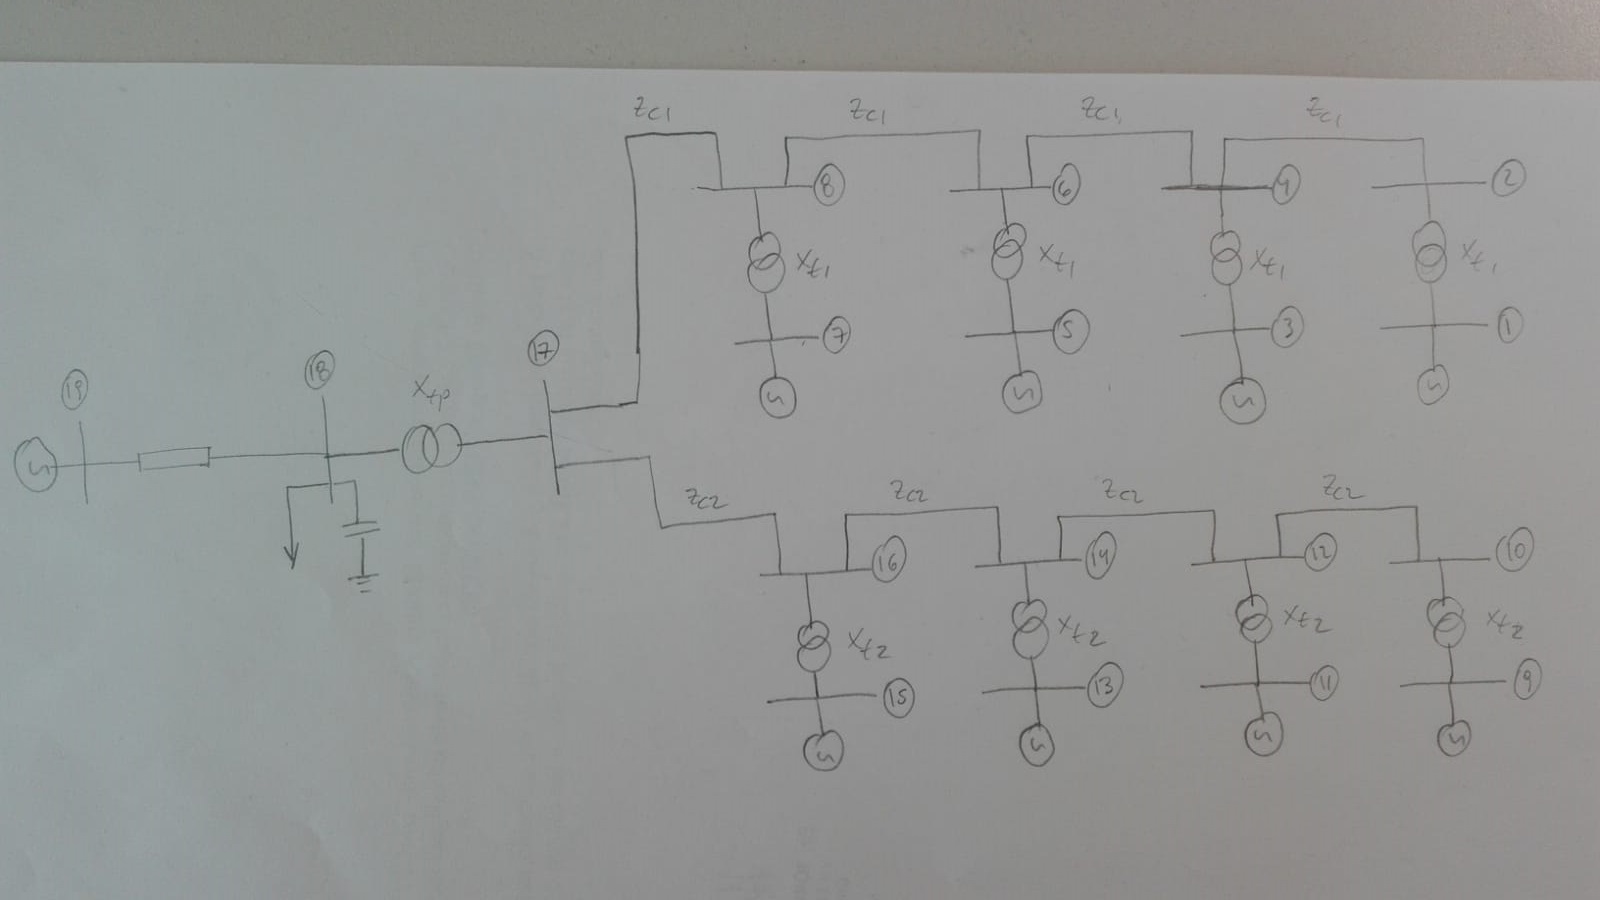 Zc1 Zc1 Zc1 Zc1
8 6 4 2
Xt1 Xt1 Xt1 Xt1
7 5 3 1
19 18 Xtp 17
Zc2 Zc2 Zc2 Zc2
16 14 12 10
Xt2 Xt2 Xt2 Xt2
15 13 11 9